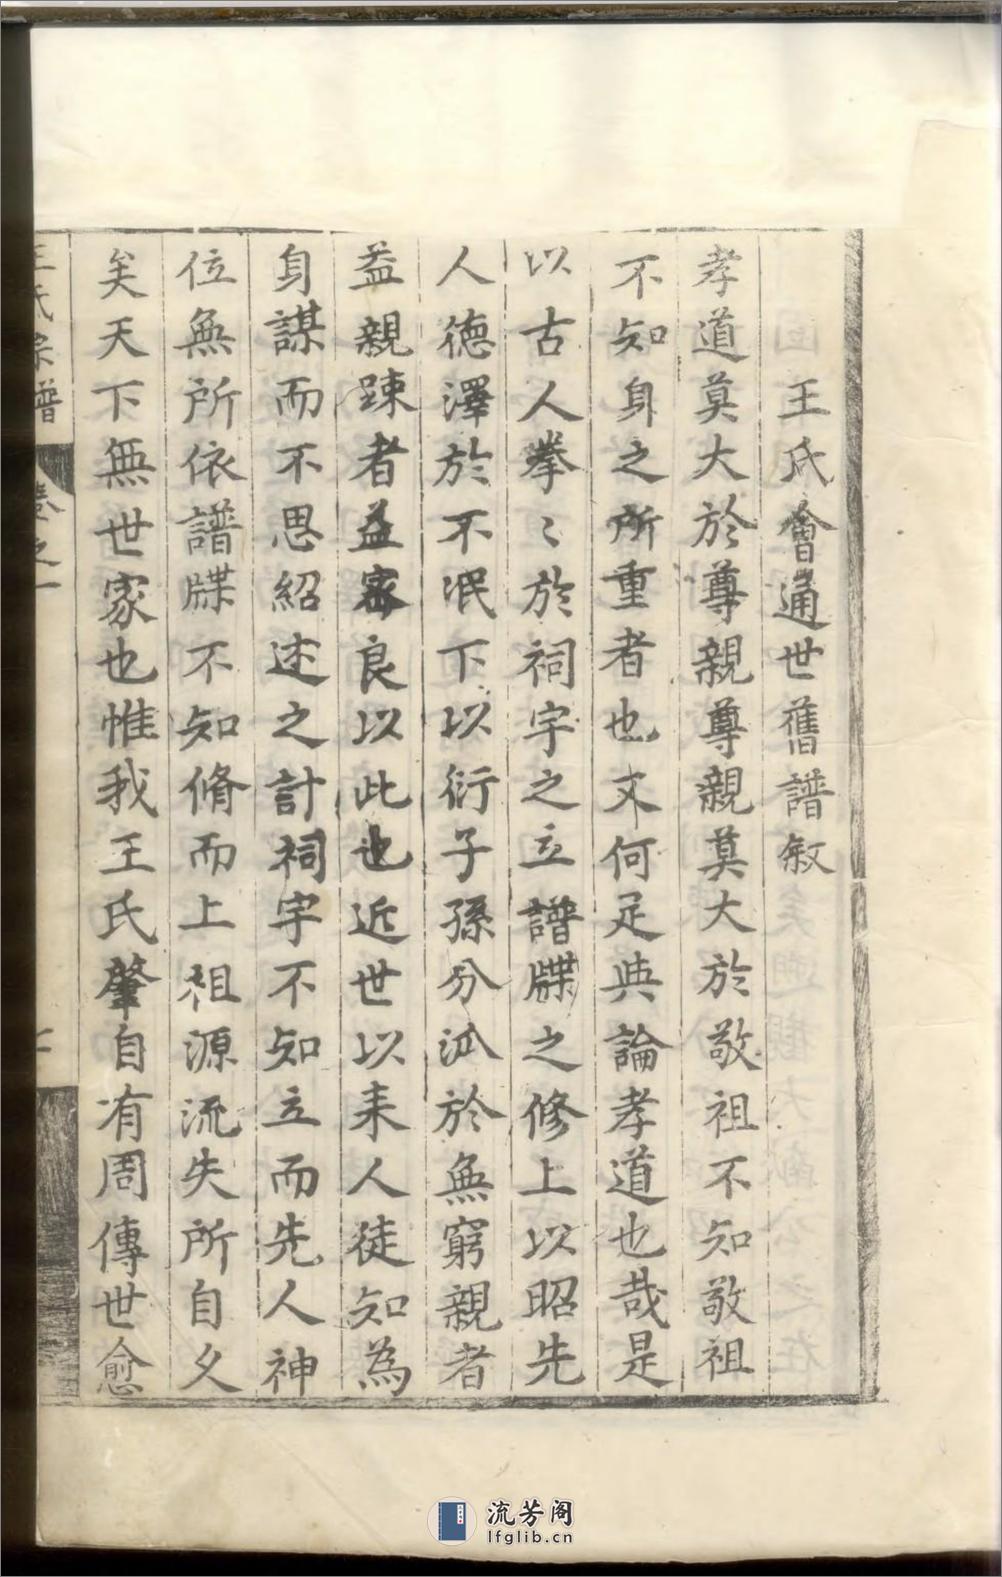 王氏會通世舊譜敘
孝道莫大於尊親尊親莫大於敬祖不知敬祖
不知身之所重者也又何足與論孝道也哉是
以古人拳〻於祠宇之立譜牒之修上以昭先
人德澤於不泯下以衍子孫分派於無窮親者
益親踈者益密良以此也近世以来人徒知為
身謀而不思紹述之計祠宇不知立而先人神
位無所依譜牒不知脩而上祖源流失所自久
矣天下無世家也惟我王氏肇自有周傳世愈
王氏宗譜 卷之一
流芳阁
lfglib.cn